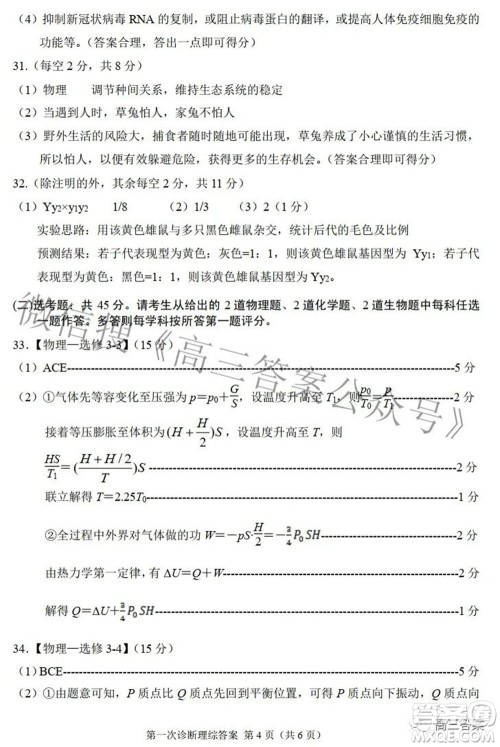 （4）抑制新冠状病毒 RNA 的复制，或阻止病毒蛋白的翻译，或提高人体细胞免疫的
功能等。（答案合理，答出一点即可得分）
31.（每空 2 分，共 8 分）
（1）物理　调节种间关系，维持生态系统的稳定
（2）当遇到人时，草兔怕人，家兔不怕人
（3）野外生活的风险大，捕食者随时随地可能出现，草兔养成了小心谨慎的生活习惯，
所以怕人，以便有效躲避危险，获得更多的生存机会。（答案合理可得分）
32.（除注明的外，其余每空 2 分，共 11 分）
（1）Yy₂×y₁y₂　1/8　（2）1/3　（3）2/3
实验思路：用该黄色雄鼠与多只黑色雌鼠杂交，统计后代的毛色及比例
预测结果：若子代表现型为黄色：灰色=1：1，则该黄色雄鼠基因型为 Yy₁；若子代
表现型为黄色：黑色=1：1，则该黄色雄鼠基因型为 Yy₂。
(二)选考题：共 45 分。请考生从给出的 2 道物理题、2 道化学题、2 道生物题中每科任选
一题作答。多答则每学科按所答第一题评分。
33.【物理—选修 3-3】（15 分）
（1）ACE-----5 分
（2）①气体先等容变化至压强为 p=p₀+G/S，设温度升高至 T₁，则p₀/T₀=p/T₁-----2 分
接着等压膨胀至体积为(H+H/2)S，设温度升高至 T，则
HS/T₁=((H+H/2)/T)S-----2 分
联立解得 T=2.25T₀-----2 分
②全过程中外界对气体做的功 W=-pS·H/2=-3/4P₀SH-----2 分
由热力学第一定律，有 ΔU=Q+W-----1 分
解得 Q=ΔU+3/4P₀SH-----1 分
34.【物理—选修 3-4】（15 分）
（1)BCE-----5 分
（2）①由题意可知，P 质点比 Q 质点先回到平衡位置，可得 P 质点先开始振动，波沿
第一次诊断理综答案 第 4 页（共 6 页）
微信搜《高三答案公众号》
高三答案